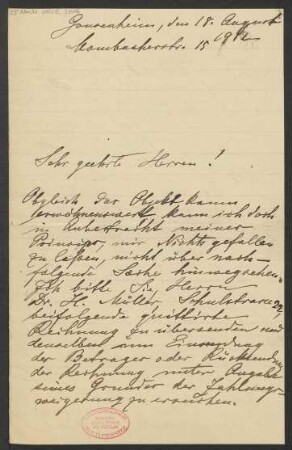 Gonsenheim, den 18. August
Mombacherstr. 15 1912
Sehr geehrte Herren!
Obgleich das Objekt kaum
erwähnenswert, kann ich doch
in Anbetracht meines
Prinzips, mir Nichts gefallen
zu lassen, nicht über nach-
folgende Sache hinwegsehen.
Ich bitte Sie, Herrn
Dr. H. Müller, Schulstrasse
beifolgende quittierte
Rechnung zu übersenden und
denselben um Einsendung
des Betrages oder Rücksendung
der Rechnung unter Angabe
eines Grundes der Zahlungs-
weigerung zu ersuchen.